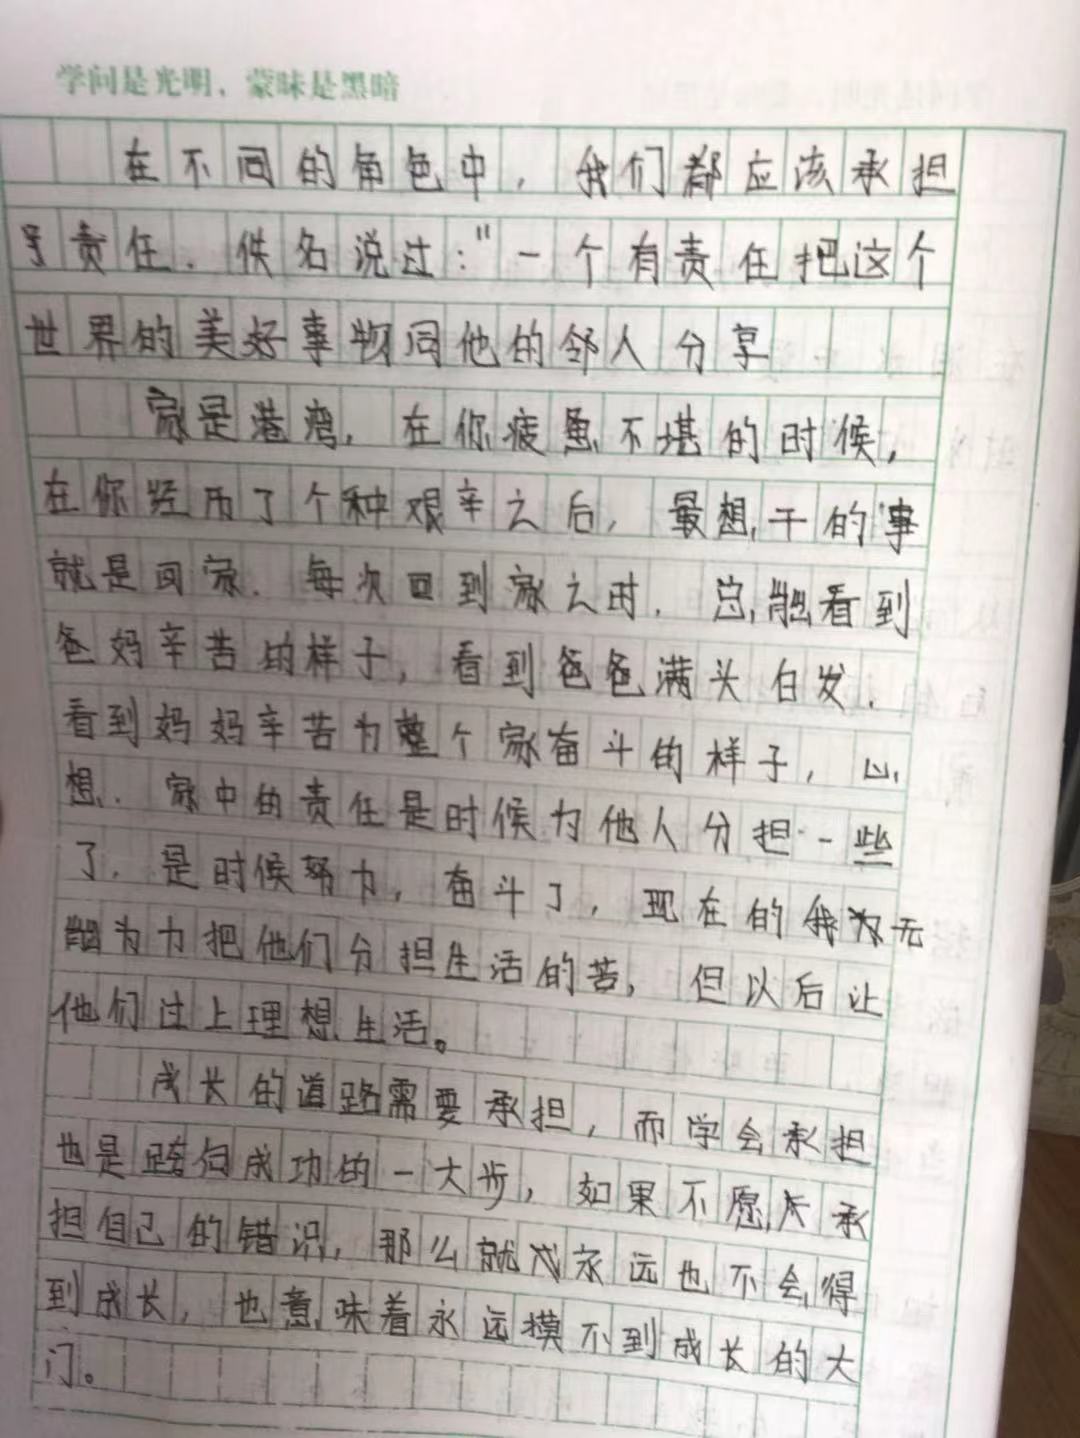 学问是光明，蒙昧是黑暗
在不同的角色中，我们都应该承担
责任．佚名说过："一个有责任把这个
世界的美好事物同他的邻人分享
家是港湾，在你疲惫不堪的时候，
在你经历了个种艰辛之后，最想干的事
就是回家．每次回到家之时．总能看到
爸妈辛苦的样子，看到爸爸满头白发．
看到妈妈辛苦为整个家奋斗的样子，心
想．家中的责任是时候为他人分担一些
了．是时候努力，奋斗了，现在的我无
能为力把他们分担生活的苦，但以后让
他们过上理想生活。
成长的道路需要承担，而学会承担
也是跨向成功的一大步，如果不愿承
担自己的错识，那么就永远也不会得
到成长，也意味着永远摸不到成长的大
门。